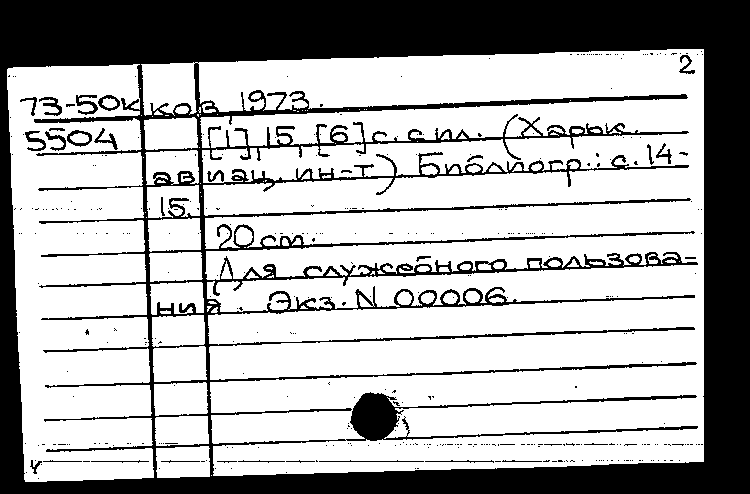 2
73-50к ков, 1973.
5504 [1], 15, [6] с. с ил. (Харьк.
авиац. ин-т) Библиогр.: с. 14-
15.
20 см.
Для служебного пользова=
ния. Экз. N 00006.